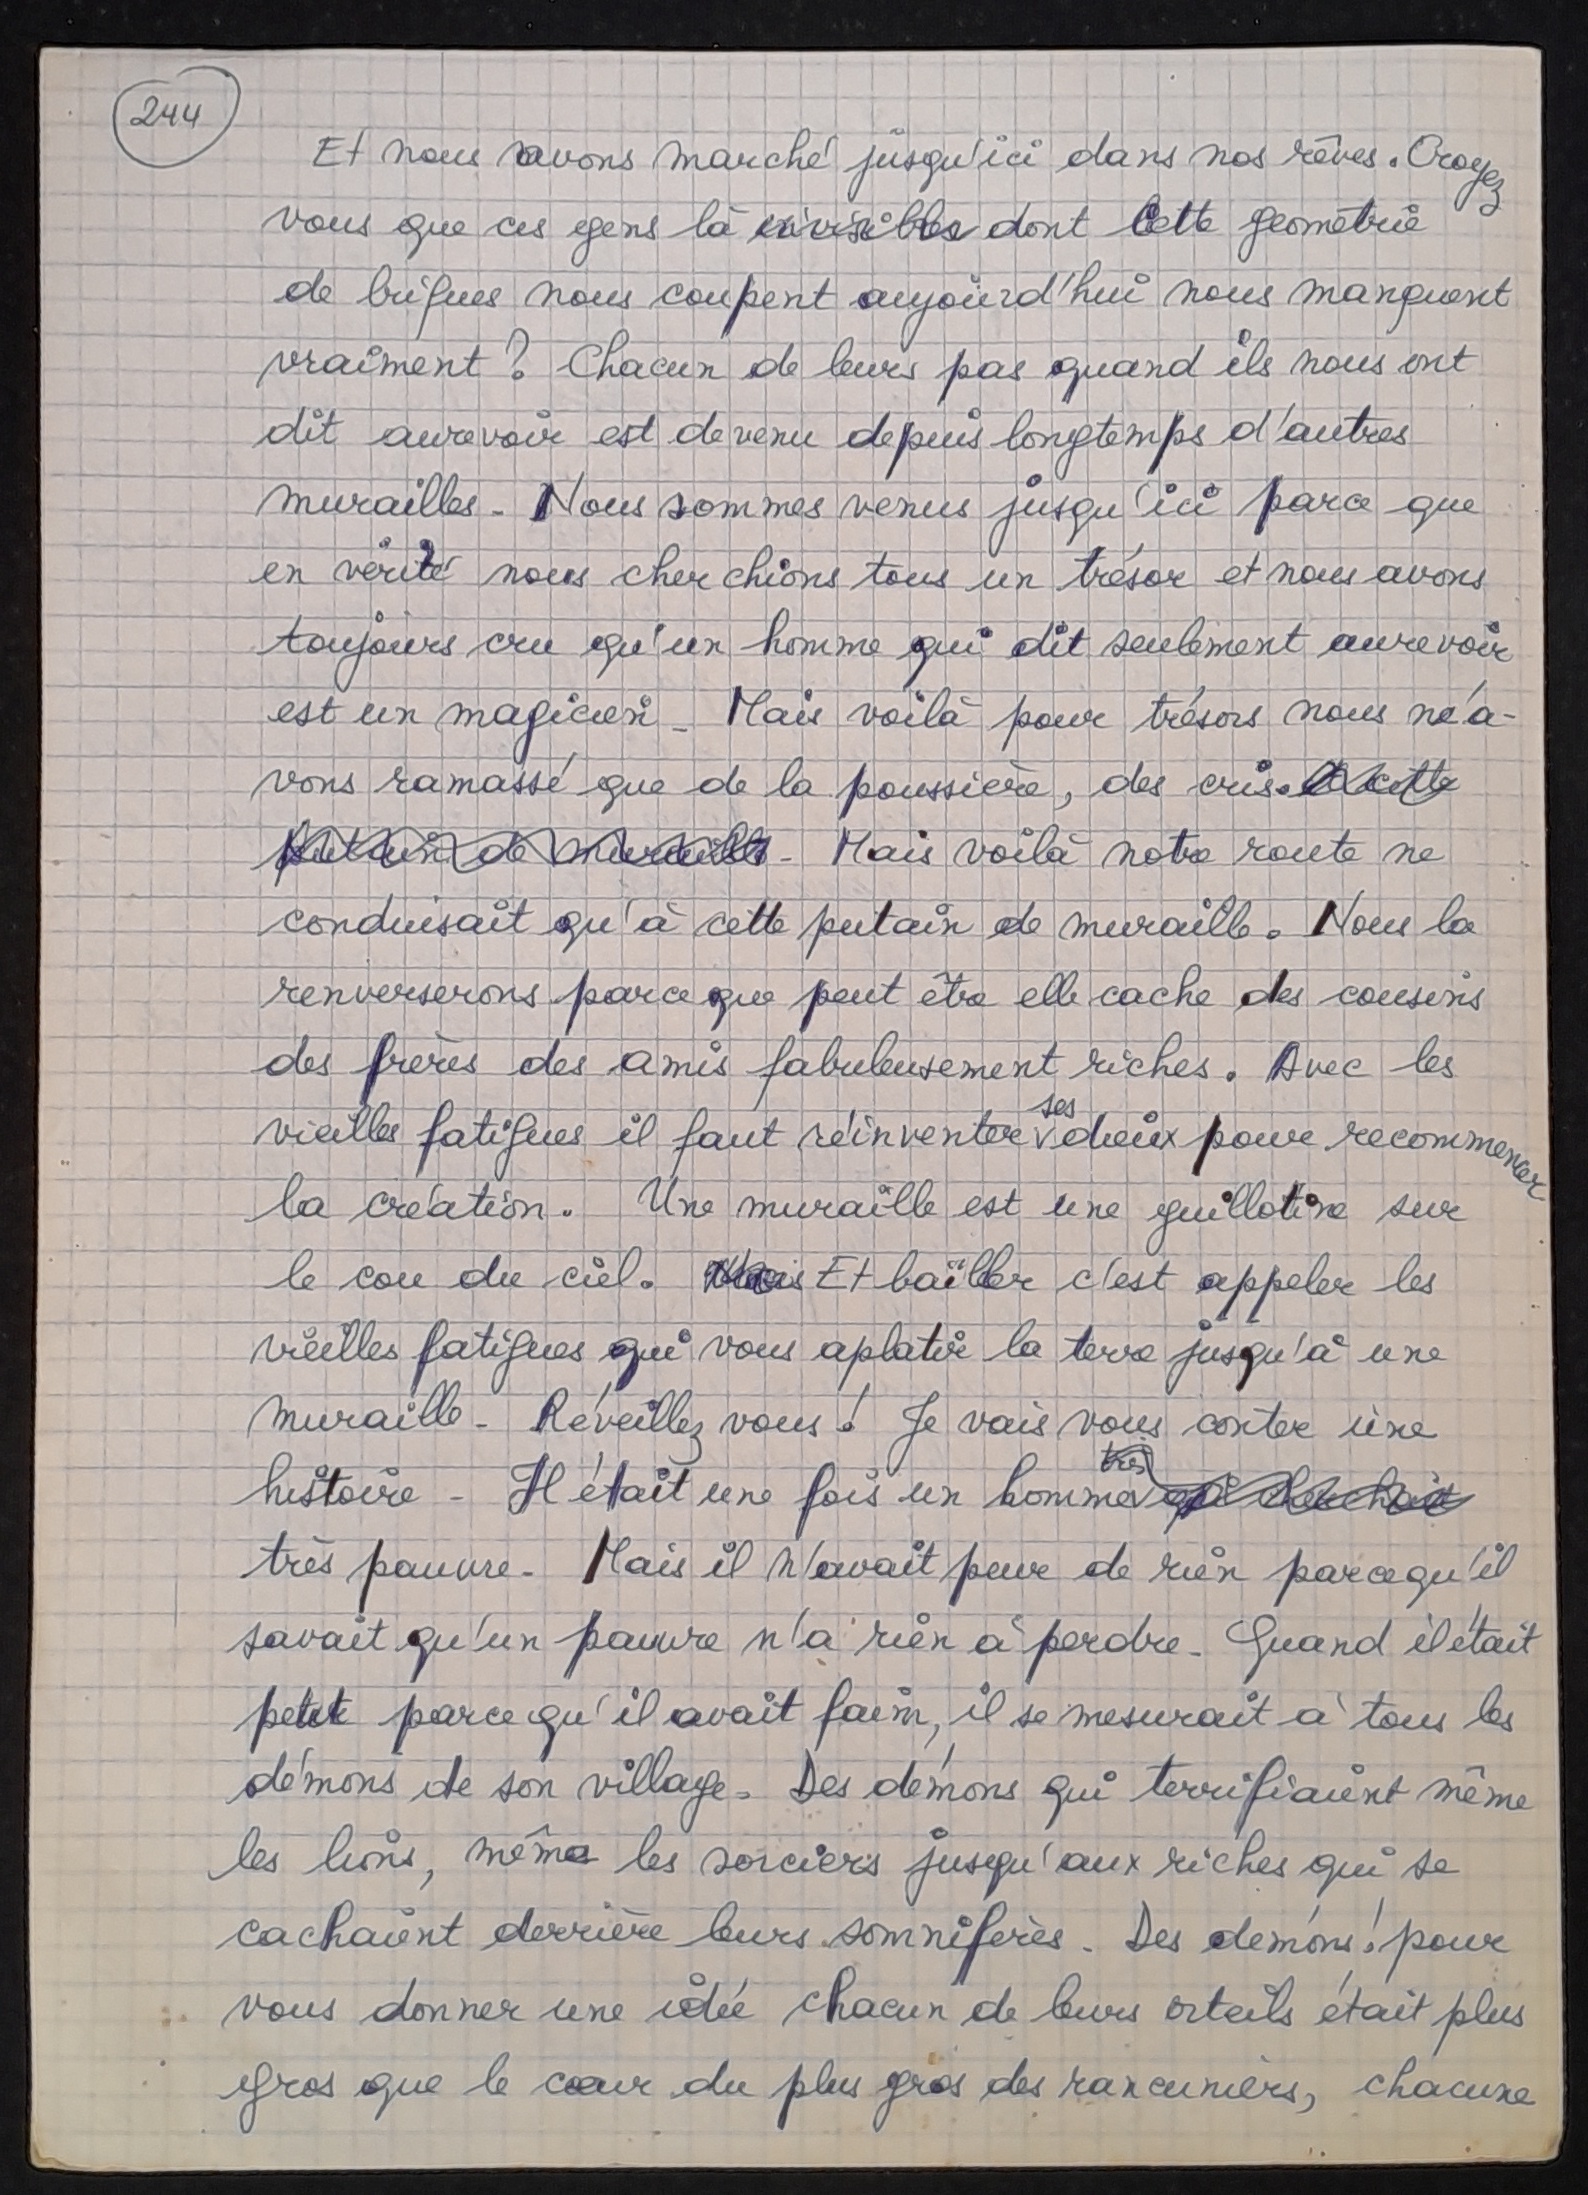 244
Et nous avons marché jusqu'ici dans nos rêves. Croyez
vous que ces gens là invisibles dont cette géométrie
de briques nous coupent aujourd'hui nous manquent
vraiment ? Chacun de leurs pas quand ils nous ont
dit aurevoir est devenu depuis longtemps d'autres
murailles. Nous sommes venus jusqu'ici parce que
en vérité nous cherchions tous un trésor et nous avons
toujours cru qu'un homme qui dit seulement aurevoir
est un magicien. Mais voilà pour trésors nous n'a-
vons ramassé que de la poussière, des cris. et cette
putain de muraille. Mais voilà notre route ne
conduisait qu'à cette putain de muraille. Nous la
renverserons parceque peut être elle cache des cousins
des frères des amis fabuleusement riches. Avec les
vieilles fatigues il faut réinventer ses dieux pour recommencer
la création. Une muraille est une guillotine sur
le cou du ciel. Mais Et bailler c'est appeler les
vieilles fatigues qui vous aplatir la terre jusqu'à une
muraille. Réveillez vous ! Je vais vous conter une
histoire. Il était une fois un homme très qui cherchait
très pauvre. Mais il n'avait peur de rien parcequ'il
savait qu'un pauvre n'a rien à perdre. Quand il était
petit parcequ'il avait faim, il se mesurait à tous les
démons de son village. Des démons qui terrifiaient même
les lions, même les sorciers jusqu'aux riches qui se
cachaient derrière leurs somnifères. Des démons ! pour
vous donner une idée chacun de leurs orteils était plus
gros que le cœur du plus gros des rancuniers, chacune